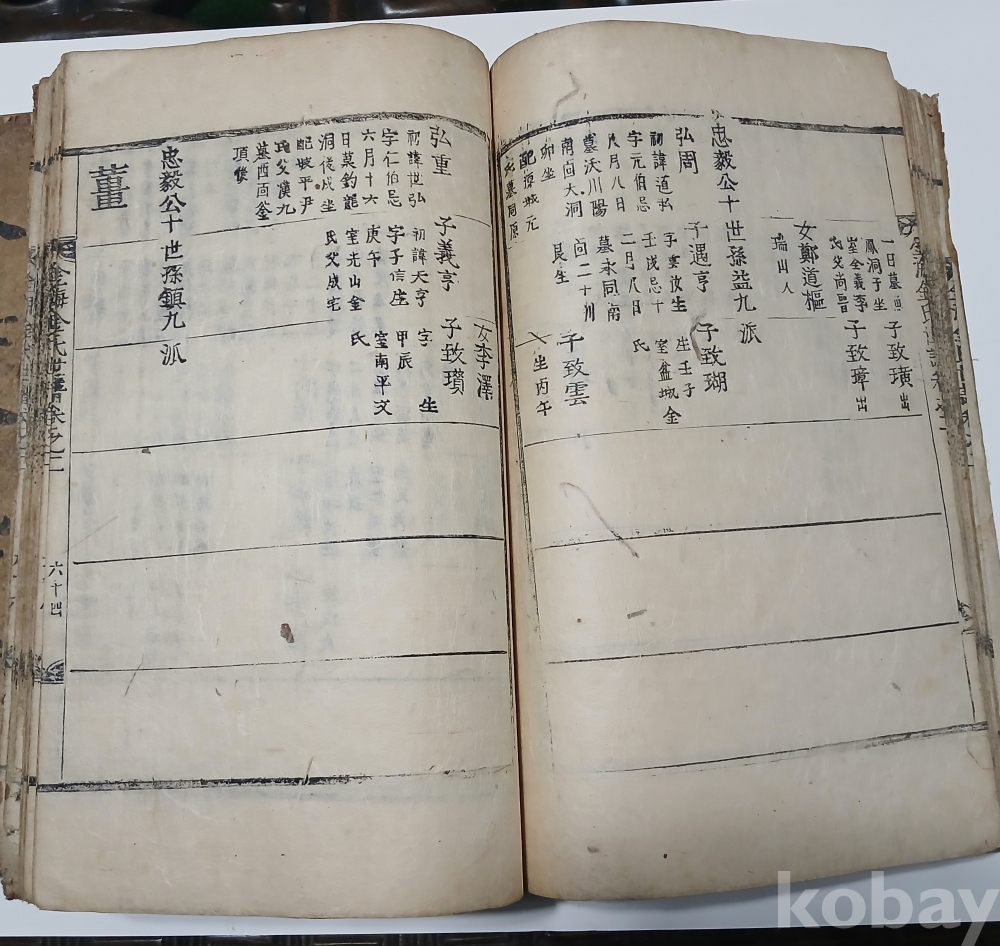 一日墓
鳳洞子坐
室全義李
氏父尚晋
子致璜出
子致璋出
女鄭道樞
瑞山人
忠毅公十世孫益九派
弘周
初諱道弘
字元伯忌
八月八日
墓沃川陽
南面大洞
卯坐
配原城元
氏墓同原
子遇亨
字雲汝生
壬戌忌十
二月八日
墓永同南
面二十川
艮坐
子致瑚
生壬子
室盆城金
氏
子致雲
生丙午
弘重
初諱世弘
字仁伯忌
六月十六
日墓釣龍
洞佳戌坐
配坡平尹
氏父漢九
墓西面釜
項後
子義亨
初諱天亨
字子信生
庚午
室光山金
氏父成宅
女李澤
子致瓚
字 生
甲辰
室南平文
氏
忠毅公十世孫鎮九派
董
金海金氏世譜卷之三
六十四
kobay